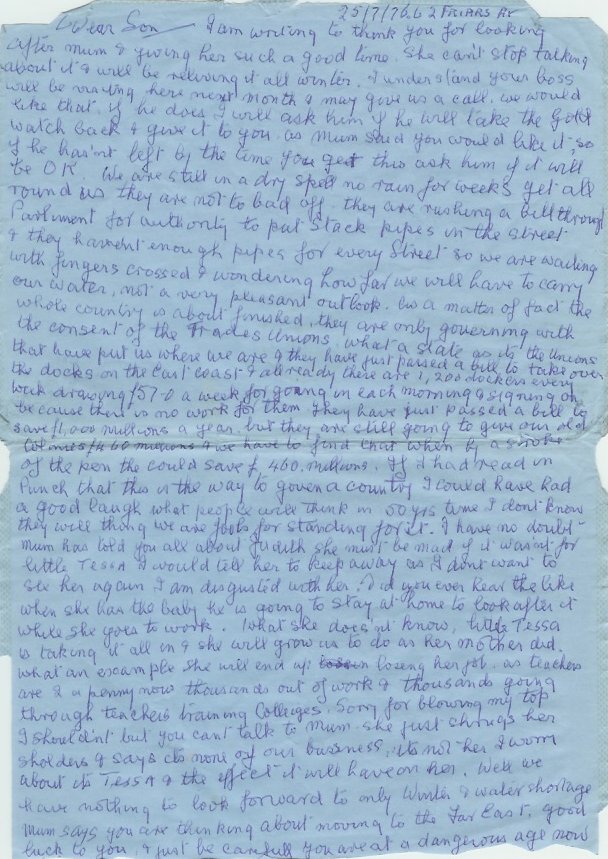 25/7/76. 62 FRIARS AV
Dear Son I am writing to think you for looking
after mum & giving her such a good time. she can't stop talking
about it & will be reliving it all winter. I understand your boss
will be visiting here next month & may give us a call. we would
like that, if he does I will ask him if he will take the gold
watch back & give it to you. as Mum said you would like it, so
if he hasn't left by the time you get this ask him if it will
be OK. We are still in a dry spell no rain for weeks get all
round us they are not to bad off. they are rushing a bill through
Parliment for authority to put Stack pipes in the street
& they havent enough pipes for every street so we are waiting
with fingers crossed & wondering how far we will have to carry
our water, not a very pleasant outlook. as a matter of fact the
whole country is about finished, they are only governing with
the consent of the Trades Unions. what a state as its the Unions
that have put us where we are & they have just passed a bill to take over
the docks on the East coast & already there are 1,200 dockers every
week drawing £57-0 a week for going in each morning & signing on
because there is no work for them they have just passed a bill to
save £1,000 millions a year. but they are still going to give our old
& we have to find that when by a stroke
of the pen the could save £ 460. millions. If I had read in
Punch that this is the way to goven a country I could have had
a good laugh what people will think in 50 yrs time I dont know
they will thing we are fools for standing for it. I have no doubt
mum has told you all about Judith she must be mad if it wasn't for
little Tessa I would tell her to keep away as I dont want to
see her again I am disgusted with her. Did you ever hear the like
when she has the baby he is going to stay at home to look after it
while she goes to work. What she does'nt know, little Tessa
is taking it all in & she will grow us to do as her mother did.
what an example she will end up loseing her job. as teachers
are 2 a penny now thousands out of work & thousands going
through teachers training Colleges. Sorry for blowing my top
I should'nt but you cant talk to mum. she just shrugs her
sholders & says its none of our business, its not her I worry
about its Tessa & the effect it will have on her. Well we
have nothing to look forward to only Winter & water shortage
Mum says you are thinking about moving to the Far East, good
luck to you & just be carefull you are at a dangerous age now